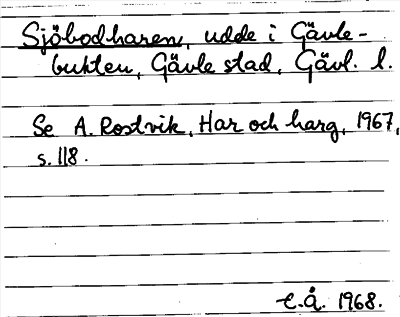 Sjöbodharen, udde i Gävle-
bukten, Gävle stad, Gävl. l.
Se A. Rostvik, Har och harg, 1967,
s. 118.
E.Å. 1968.